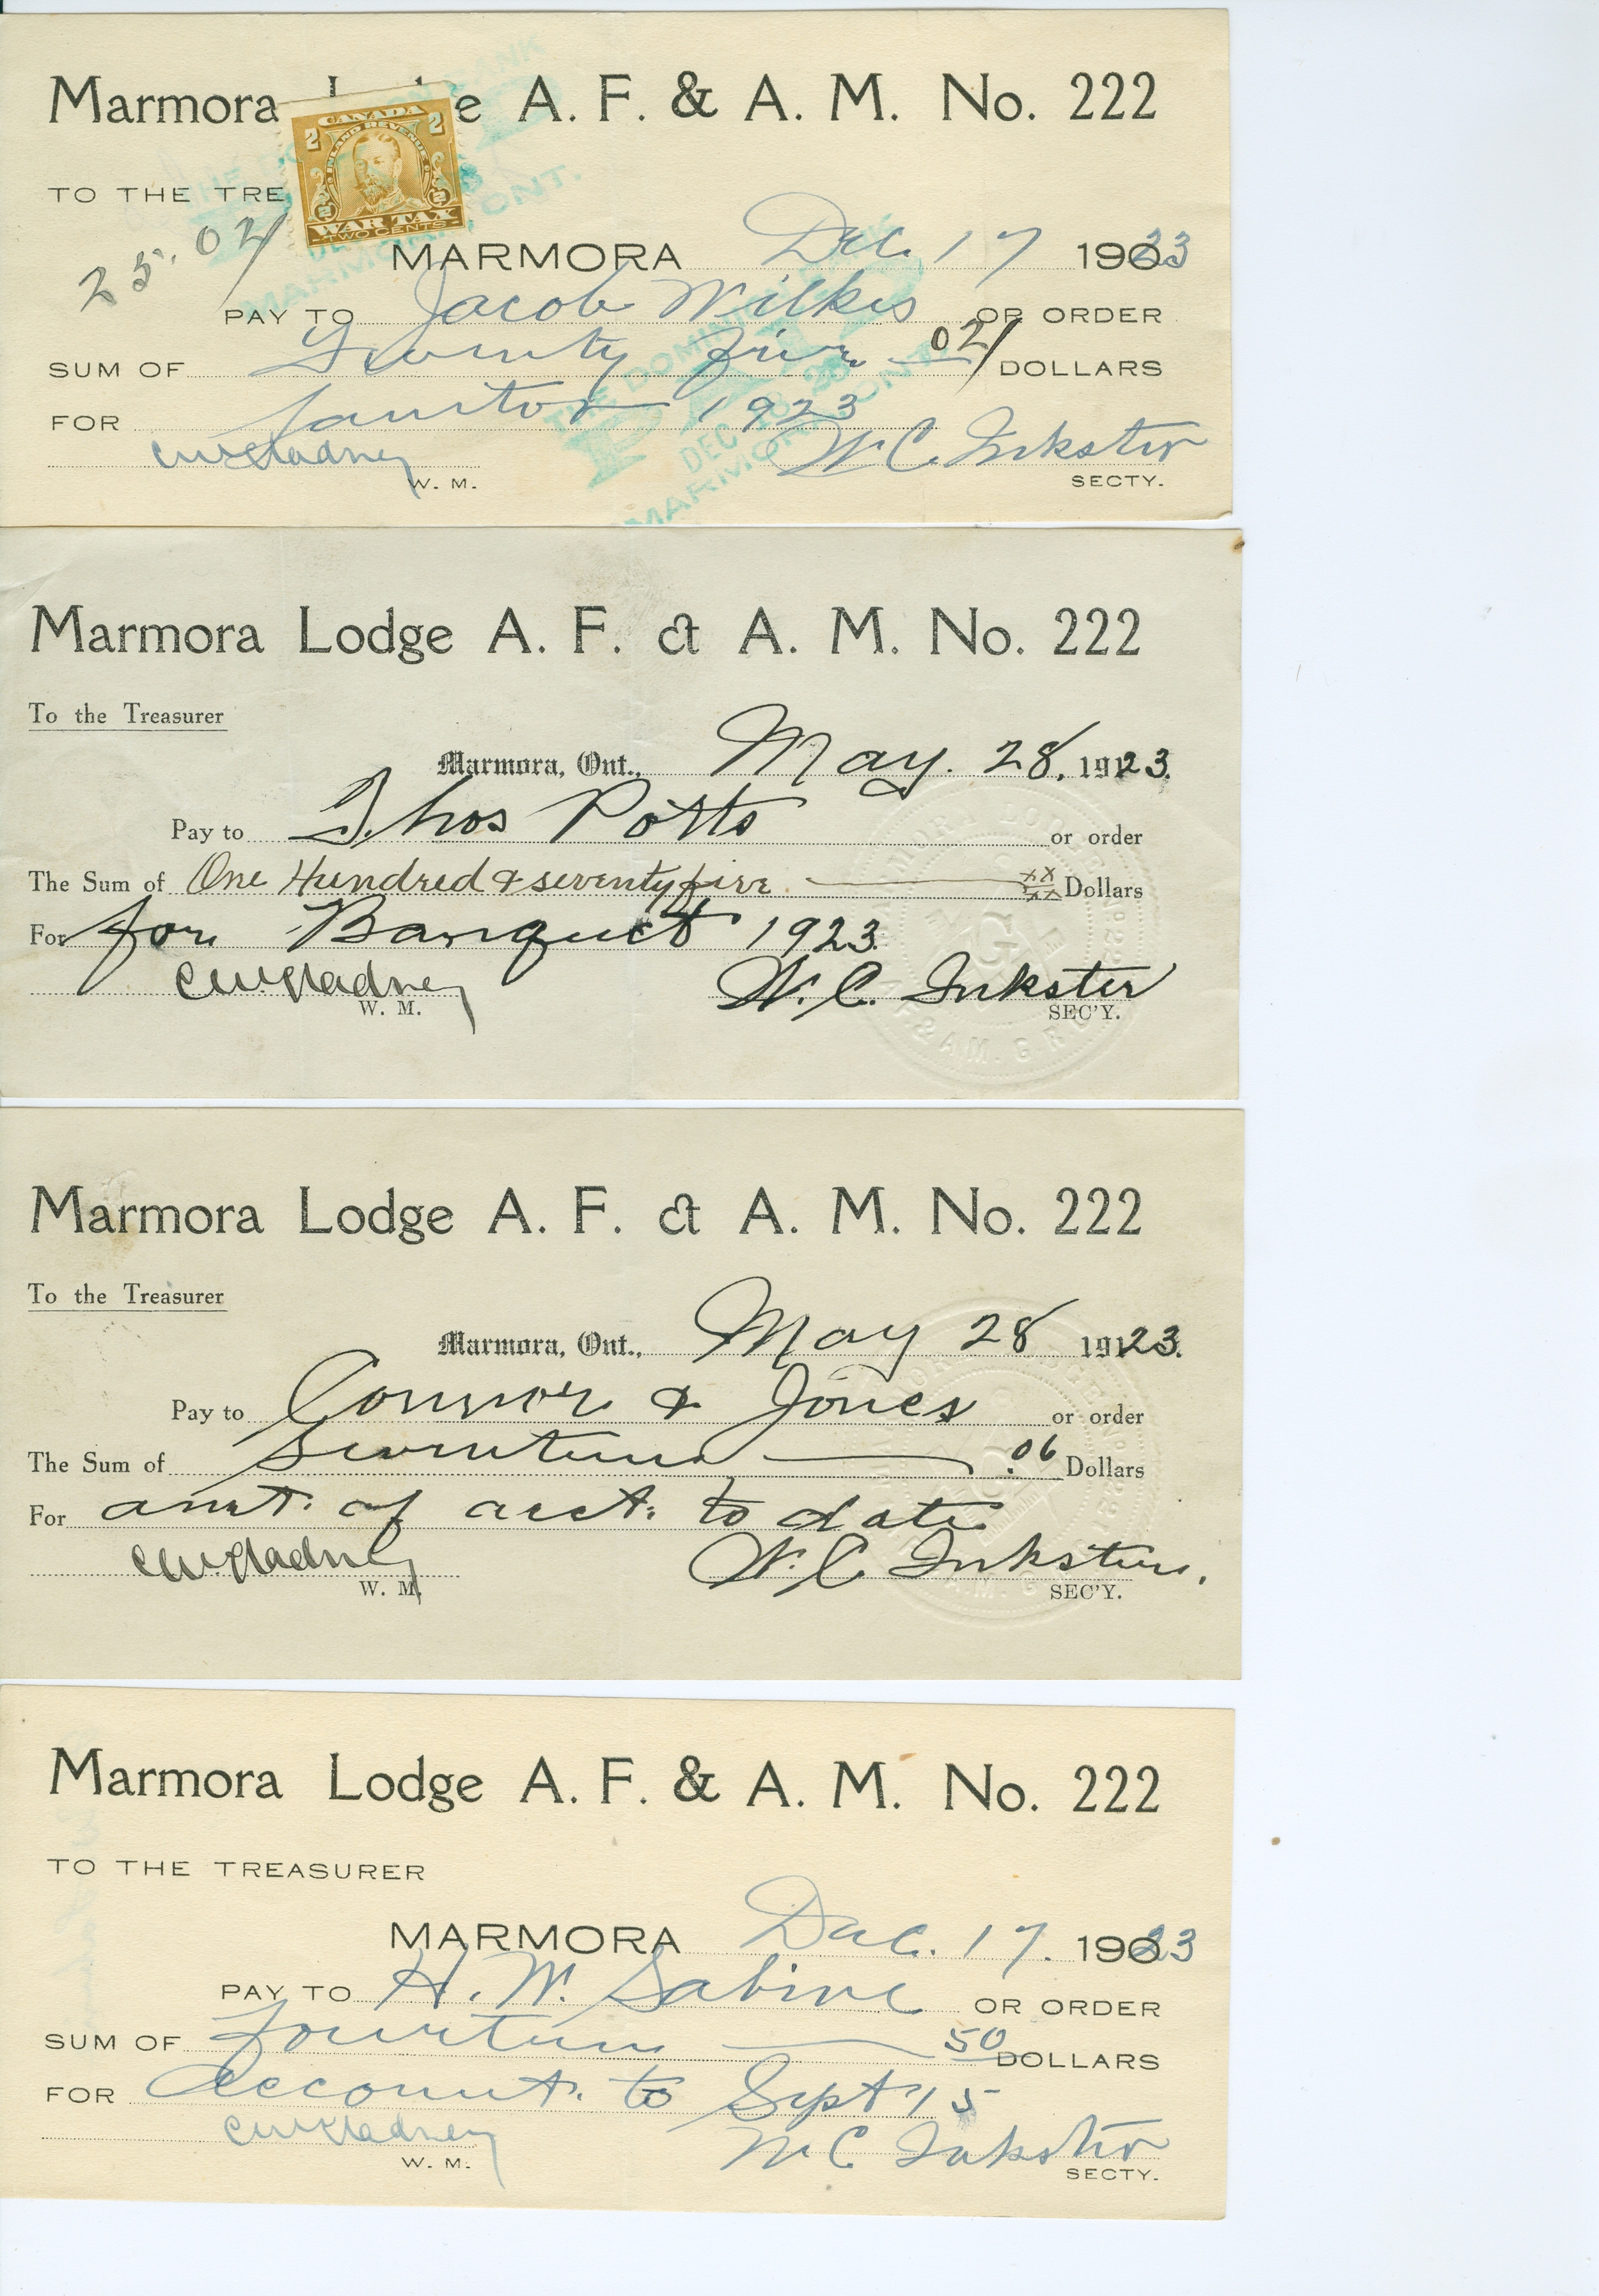 Marmora Lodge A. F. & A. M. No. 222
CANADA
2 2
INLAND REVENUE
WAR TAX
TWO CENTS
TO THE TRE
25.02
MARMORA Dec. 17 1923
PAY TO Jacob Wilkes OR ORDER
SUM OF Twenty five 02 DOLLARS
FOR Janitor 1923
THE DOMINION BANK
PAID
DEC
MARMORA, ONT.
C.W. Gladney W. C. Inkster
W. M. SECTY.
Marmora Lodge A. F. & A. M. No. 222
To the Treasurer
Marmora, Ont., May. 28, 1923.
Pay to Thos Potts or order
The Sum of One Hundred & seventy five xx/xx Dollars
For for Banquet 1923
C.W. Gladney W. C. Inkster
W. M. SEC'Y.
Marmora Lodge A. F. & A. M. No. 222
To the Treasurer
Marmora, Ont., May 28 1923.
Pay to Connor & Jones or order
The Sum of Seventeen .06 Dollars
For amt. of acct. to date
C.W. Gladney W. C. Inkster.
W. M. SEC'Y.
Marmora Lodge A. F. & A. M. No. 222
TO THE TREASURER
MARMORA Dec. 17. 1923
PAY TO H. W. Sabine OR ORDER
SUM OF fourteen 50 DOLLARS
FOR Account. to Sept 15
C.W. Gladney W C. Inkster
W. M. SECTY.